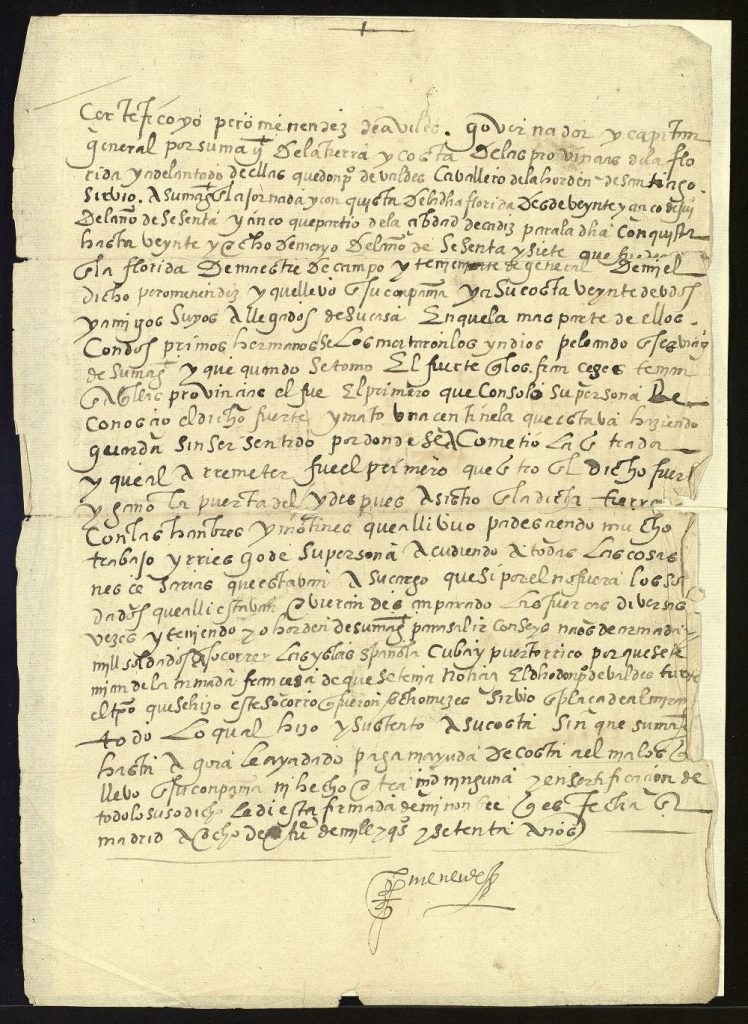 Certefico yo pero menendez de aviles. governador y capitan
general por su mag De la tierra y costa De las provincias de la flo
rida y adelantado de ellas que don po de valdes Cavallero de la horden de san tiago
sirvio. A su mag en la Jornada y conquista De la dha florida Desde veynte y cinco de
Del año de sesenta y cinco que partio de la cibdad de cadiz para la dha conquista
hasta veynte y ocho De mayo Del año de sesenta y siete que
en la florida De maestre De campo y teniente de general Del
dicho pero menendez y que llevo en su conpania y a su costa veynte deudos
y amigos suyos Allegados de su casa En que la mas parte de ellos
Con dos primos hermanos se los mataron los yndios peleando en servicio
de su mag y que quando se tomo El fuerte q los franceses tenian
en Aqllas provincias el fue El primero que con solo su persona Re
conoscio el dicho fuerte y mato una centinela que estava haziendo
guarda sin ser sentido por donde se Acometio La entrada
y que al Arremeter fue el primero que entro en el dicho fuert
y gano la puerta del y despues Asistio en la dicha tierra
Con las hanbres y motines que alli uvo padesciendo mucho
trabajo y rriesgo de su persona Acudiendo A todas Las cosas
nescesarias que estavan A su cargo que si por el no fuera los sol
dados que alli estavan uvieran desanparado Las fuercas diversas
vezes y teniendo yo horden de su mag para salir con seys naos de armada
mill soldados A socorrer Las yslas española Cuba y puerto rrico por que se te
mian de la armada francesa de que se tenia noticia El dho don po de valdes
el tpo que se hizo este socorro que fueron ocho mezes sirvio en placa de almirante
todo Lo qual hizo y sustento A su costa sin que su mag
hasta Agora le aya dado paga ni ayuda De costa a el ni a los q
llevo en su conpania ni hecho otra md ninguna y en sertificacion de
todo lo susodicho Le di esta firmada de mi nonbre que es fecha en
madrid A ocho de de mill e qs y setenta años
po menendez